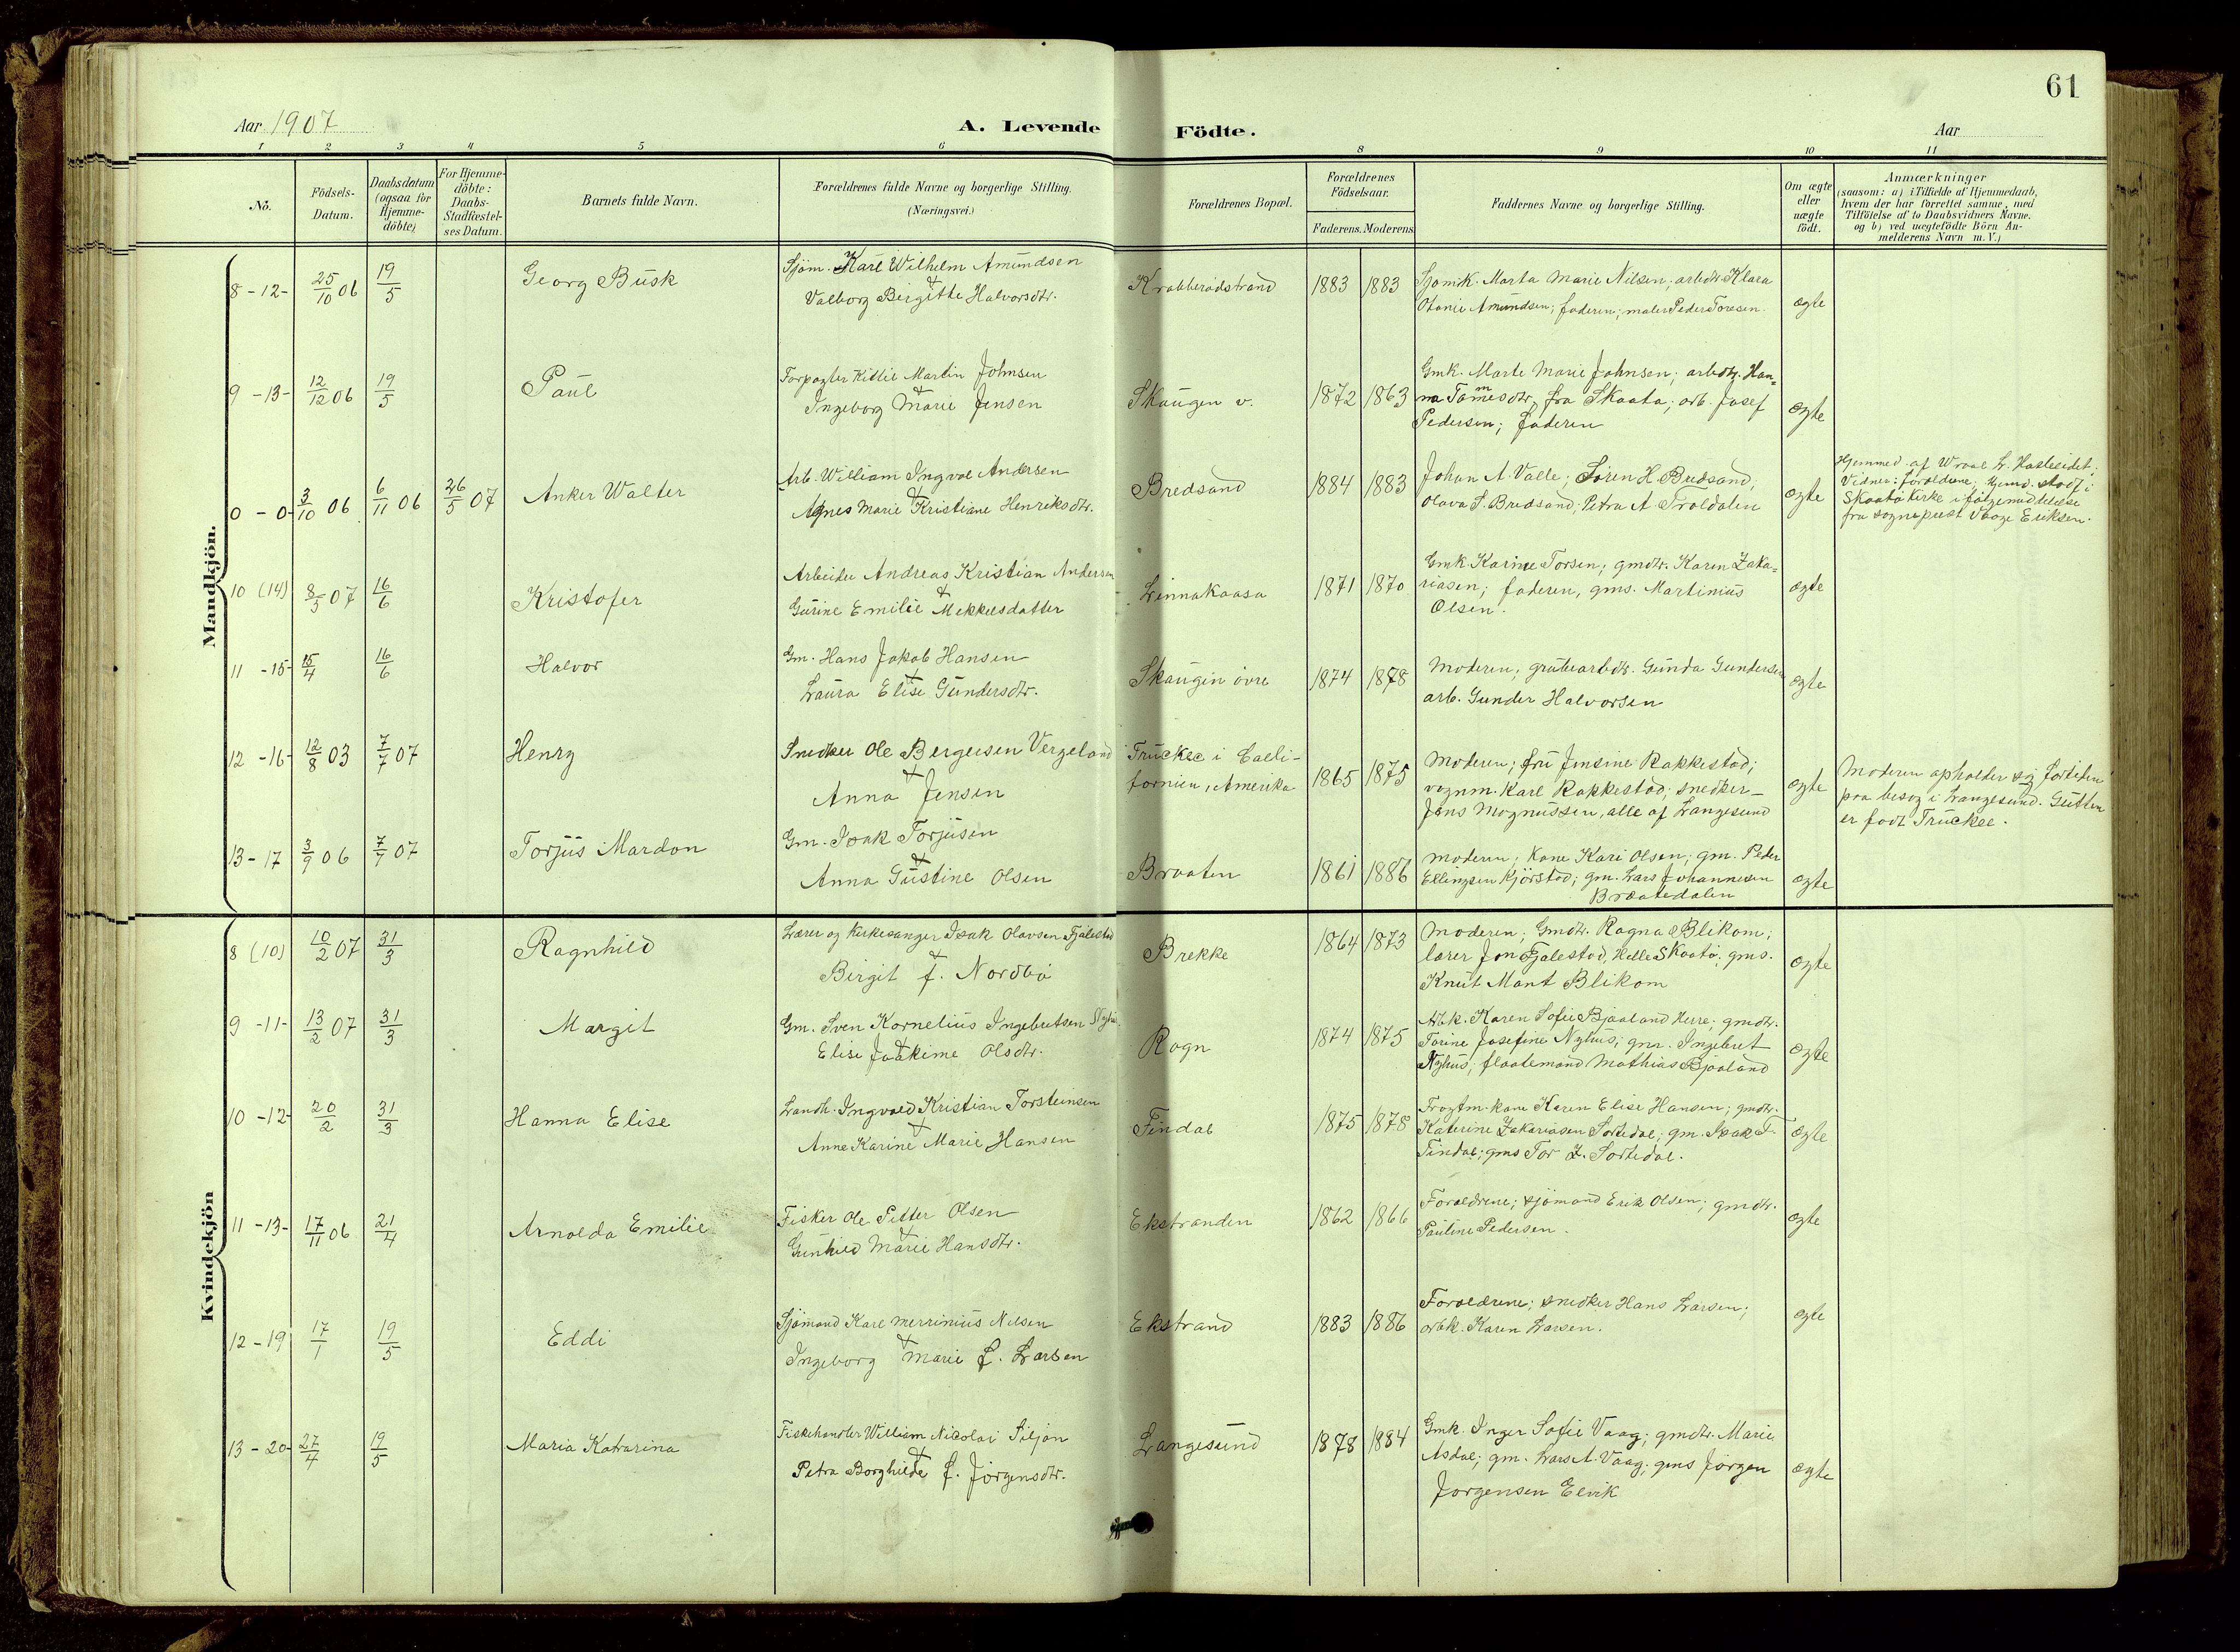 61
Aar 1907
A. Levende Födte.
Aar
1 2 3 4 5 6 8 9 10 11
Nö.
Födsels-Datum.
Daabsdatum (ogsaa for Hjemme-döbte)
For Hjemme-döbte: Daabs-Stadfæstel-ses Datum.
Barnets fulde Navn.
Forældrenes fulde Navne og borgerlige Stilling. (Næringsvei.)
Forældrenes Bopæl.
Forældrenes Födselsaar.
Faderens. Moderens.
Faddernes Navne og borgerlige Stilling.
Om ægte eller uægte födt.
Anmærkninger (saasom: a) i Tilfælde af Hjemmedaab, hvem der har forrettet samme, med Tilföielse af to Daabsvidners Navne. og b) ved uægtefödte Börn An-melderens Navn m. V.)
Mandkjön.
8 - 12 - 25/10 06 19/5 Georg Busk
Sjöm. Karl Wilhelm Amundsen
Valborg Birgitte Halvorsdtr.
Krabberödstrand 1883 1883
Sjömk. Marta Marie Nilsen; arbdtr. Klara
Otanie Amundsen; faderen; maler Peder Toresen.
ægte
9 - 13 - 12/12 06 19/5 Paul
Forpagter Kittil Martin Johnsen
Ingeborg Marie Jensen
Skaugen v. 1872 1863
Gmk. Marte Marie Johnsen; arbdtr. Han=
na Tommesdtr. fra Skaata; arb. Josef
Pedersen; faderen
ægte
0 - 0 - 3/10 06 6/11 06 26/5 07 Anker Walter
Arb. William Ingval Andersen
Agnes Marie Kristiane Henriksdtr.
Bredsand 1884 1883
Johan A. Valle; Sören H. Bredsand;
Olava S. Bredsand; Petra A. Troldalen
ægte
Hjemmed. af Wraal L. Hasleeidet.
Vidner: forældrene; hjemd. stadf. i
Skaatö kirke ifölge meddelelse
fra sogneprest Vaage Eriksen.
10 (14) 8/5 07 16/6 Kristofer
Arbeider Andreas Kristian Andersen
Gurine Emilie Mekkelsdatter
Linnakaasa 1871 1870
Gmk. Karine Torsen; gmdtr. Karen Zaka=
riasen; faderen, gms. Martinius
Olsen.
ægte
11 - 15 - 15/4 16/6 Halvor
Gm. Hans Jakob Hansen
Laura Elise Gundersdtr.
Skaugen övre 1874 1878
Moderen; grubearbdtr. Gunda Gundersen
arb. Gunder Halvorsen
ægte
12 - 16 - 12/8 03 7/7 07 Henry
Snedker Ole Bergersen Vergeland
Anna Jensen
Truckee i Calli-
fornien, Amerika 1865 1875
Moderen; fru Jensine Rakkestad;
vognm. Karl Rakkestad; snedker
Jens Magnussen, alle af Langesund
ægte
Moderen opholder sig fortiden
paa besög i Langesund. Gutten
er födt Truckee.
13 - 17 3/9 06 7/7 07 Torjus Mardon
Gm. Isak Torjusen
Anna Gustine Olsen
Braaten 1861 1886
Moderen; kone Kari Olsen; gm. Peder
Ellingsen Kjörstad; gm. Lars Johannesen
Braatedalen
ægte
Kvindekjön
8 (10) 10/2 07 31/3 Ragnhild
Lærer og kirkesanger Isak Olavsen Fjalestad
Birgit f. Nordbö
Brekke 1864 1873
Moderen; Gmdtr. Ragna Blikom;
lærer Jon Fjalestad, Helle Skaatö; gms.
Knut Blikom
ægte
9 - 11 - 13/2 07 31/3 Margit
Gm. Sven Kornelius Ingebretsen
Elise Joakime Olsdtr.
Rogn 1874 1875
Arbk. Karen Sofie Bjaaland Herre; gmdtr.
Torine Josefine Nyhus; gm. Ingebret
Nyhus; flaatemand Mathias Bjaaland
ægte
10 - 12 20/2 31/3 Hanna Elise
Landh. Ingvald Kristian Torsteinsen
Anne Karine Marie Hansen
Findal 1875 1878
Fragtm. kone Karen Elise Hansen; gmdtr.
Katerine Zakariasen Sortedal; gm. Isak T.
Findal; gms Tor Z. Sortedal.
ægte
11 - 13 - 17/11 06 21/4 Arnolda Emilie
Fisker Ole Petter Olsen
Gunhild Marie Hansdtr.
Ekstranden 1862 1866
Forældrene; sjömand Erik Olsen; gmdtr.
Pauline Pedersen.
ægte
12 - 19 17/1 19/5 Eddi
Sjömand Karl Merrinius Nilsen
Ingeborg Marie f. Larsen
Ekstrand 1883 1886
Forældrene; snedker Hans Larsen;
arbk. Karen Larsen.
ægte
13 - 20 - 27/4 19/5 Maria Katarina
Fiskehandler William Nicolai Siljan
Petra Borghilde f. Jörgensdtr.
Langesund 1878 1884
Gmk. Inger Sofie Vaag; gmdtr. Marie
Asdal; gm. Lars A. Vaag; gms Jörgen
Jörgensen Elvik
ægte